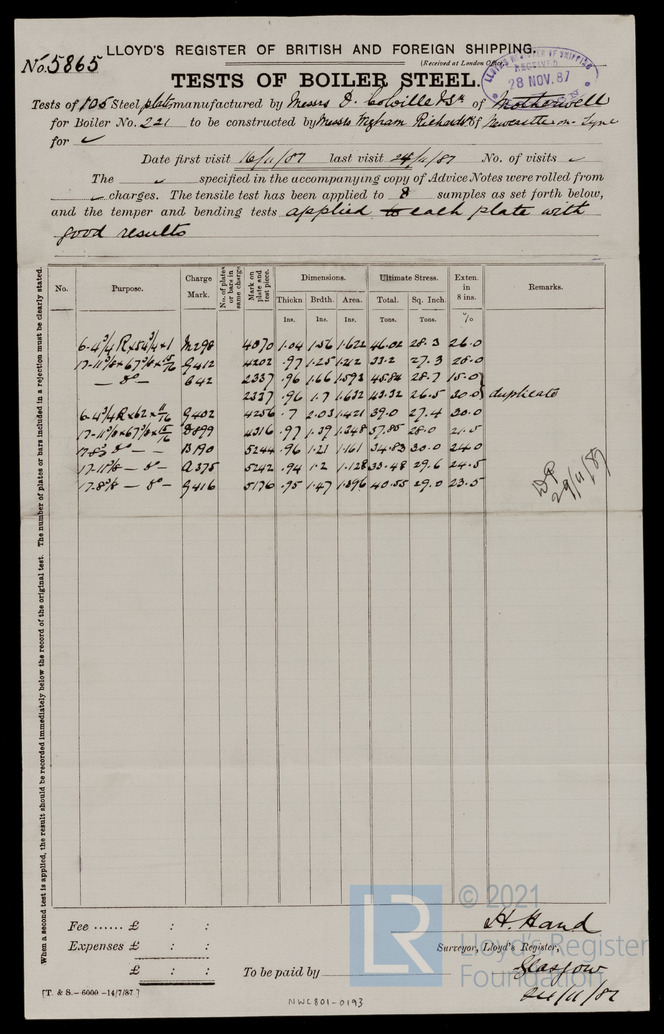 No. 5865
LLOYD'S REGISTER OF BRITISH AND FOREIGN SHIPPING.
(Received at London Office
LLOYD'S REGISTER OF SHIPPING
RECEIVED
28 NOV. 87
TESTS OF BOILER STEEL.
Tests of 105 Steel plates manufactured by Messrs D. Colville & Sn of Motherwell
for Boiler No. 221 to be constructed by Messrs Wigham Richardson of Newcastle on Tyne
for ✓
Date first visit 16/11/87 last visit 24/11/87 No. of visits ✓
The ✓ specified in the accompanying copy of Advice Notes were rolled from
✓ charges. The tensile test has been applied to 8 samples as set forth below,
and the temper and bending tests applied to each plate with
good results
When a second test is applied, the result should be recorded immediately below the record of the original test. The number of plates or bars included in a rejection must be clearly stated.
No. Purpose. Charge Mark. No. of plates or bars in same charge. Mark on plate and test piece. Dimensions. Ultimate Stress. Exten. in 8 ins. Remarks.
Thickn Brdth. Area. Total. Sq. Inch.
Ins. Ins. Ins. Tons. Tons. %
6-4 3/4 R x 54 3/4 x 1 M298 4070 1.04 1.56 1.622 46.02 28.3 26.0
17-11 5/8 x 67 5/8 x 15/16 G412 4202 .97 1.25 1.212 33.2 27.3 28.0
— do — C42 2337 .96 1.66 1.593 45.84 28.7 15.0
2337 .96 1.7 1.632 43.32 26.5 30.0 duplicate
6-4 3/4 R x 62 x 11/16 G402 4256 .7 2.03 1.421 39.0 27.4 30.0
17-11 5/8 x 67 5/8 x 15/16 D899 4316 .97 1.39 1.348 37.85 28.0 21.5
17-8 5/8 do — — B190 5244 .96 1.21 1.161 34.83 30.0 24.0
17-11 5/8 — do — A375 5242 .94 1.2 1.128 33.48 29.6 24.5
17-8 5/8 — do — G416 5176 .95 1.47 1.396 40.55 29.0 23.5
29/11/87
Fee ...... £ : :
Expenses £ : :
£ : :
To be paid by
H. Hand
Surveyor, Lloyd's Register,
Glasgow
24/11/87
[T. & S.—6000—14/7/87.]
NWC801-0193
LR
© 2021
Lloyd's Register
Foundation